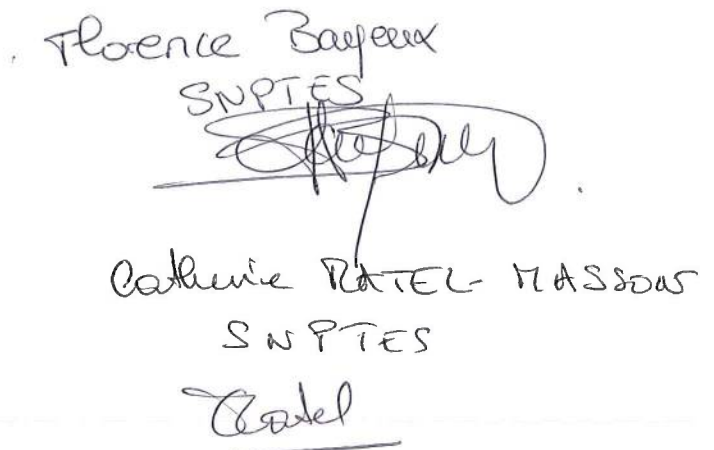 Florence Bayeux
SNPTES
Catherine RATEL-MASSON
SNPTES
Ratel